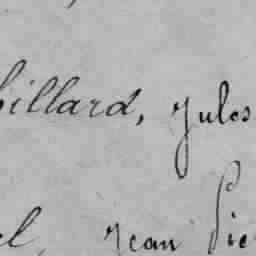 billard, Jules
el, Jean Pie